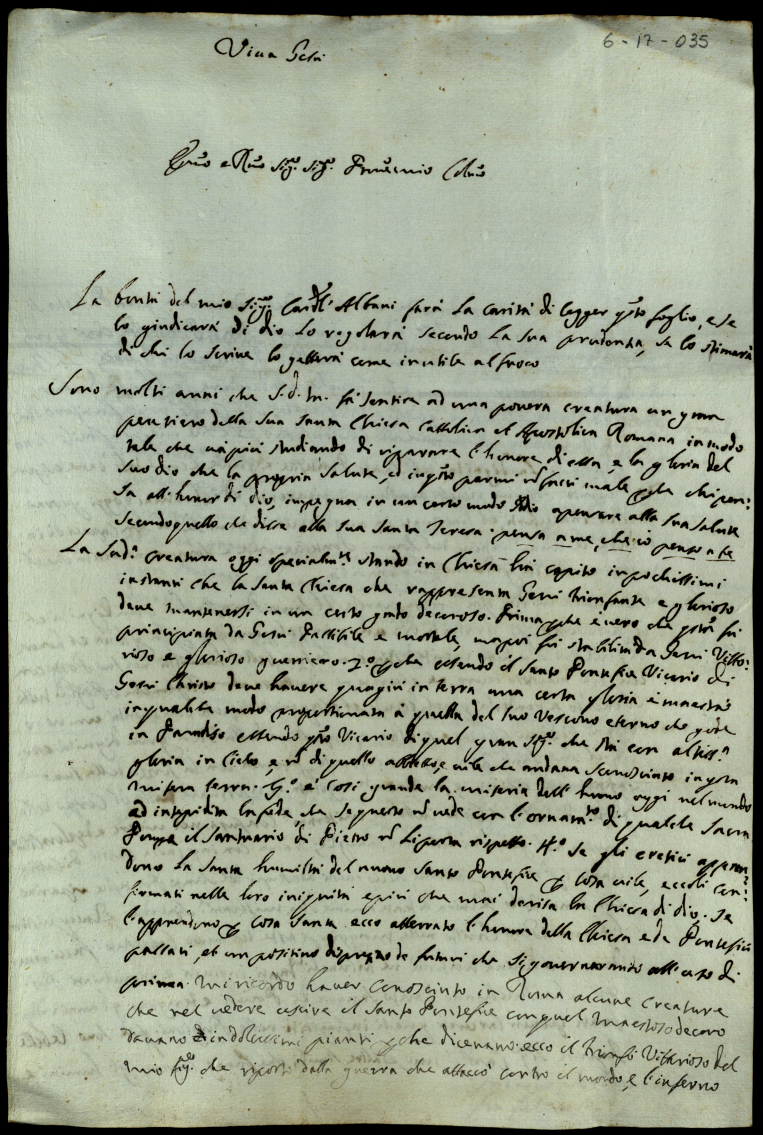 6 - 17 - 035
Viva Gesù
Emo e Rmo Sigr. Sigr. Prone
La bontà del mio Sigr. Cardl. Albani farà la carità di legger qsto foglio, e se
lo giudicarà di dio lo regolarà secondo la sua prudenza, se lo stimarà
di chi lo scrive lo getterà come inutile al fuoco
Sono molti anni che S.d.M. fà sentire ad una povera creatura un gran
pensiero della sua Santa Chiesa Cattolica et Apostolica Romana in modo
tale che và più studiando di riparare l'honore di essa, e la gloria del
suo dio che la propria salute, et in qsto parmi nō facci male pche chi pen=
sa all'honor di dio, impegna in un certo modo Iddio a pensare alla sua salute
secondo quello che disse alla sua Santa Teresa: pensa a me, che io penso a te
La Sudª. creatura oggi specialmte. stando in Chiesa hà capito in pochissimi
instanti che la Santa Chiesa che rappresenta Gesù trionfante e glorioso
deve mantenersi in un certo grado decoroso. Prima pche è vero che qsta fù
principiata da Gesù Passibile e mortale, mà poi fù stabilita da Gesù Vitto=
rioso e glorioso guerriero. 2º. pche essendo il Santo Pontefice Vicario di
Gesù Christo deve havere quaggiù in terra una certa gloria e maestà
in qualche modo proportionata à quella del suo Vescovo eterno che gode
in Paradiso essendo qsto Vicario di quel gran Sigr. che stà con altissª.
gloria in Cielo, e nō di quello abietto e vile che andava sconosciuto in qsta
misera terra. 3º. è così grande la miseria dell'huomo oggi nel mondo
ad intepidita la fede che se questo nō vede con l'ornamto. di qualche sacra
Pompa il Santuario di Pietro nō li porta rispetto. 4º. Se gli eretici appren=
dono la Santa humiltà del nuovo Santo Pontefice p cosa vile, eccoli con=
firmati nelle loro iniquità e più che mai derisa la Chiesa di dio. Se
l'apprendono p cosa santa ecco atterrato l'honore della Chiesa e de Pontefici
passati, et un positivo disprezzo de futuri che si governaranno all'uso di
prima. Mi ricordo haver conosciuto in Roma alcune creature
che nel vedere uscire il Santo Pontefice con quel maestoso decoro
davano in dolcissimi pianti pche dicevano: ecco il trionfo Vittorioso del
mio Sigr. che riportò dalla guerra che attaccò contro il mondo, e l'inferno